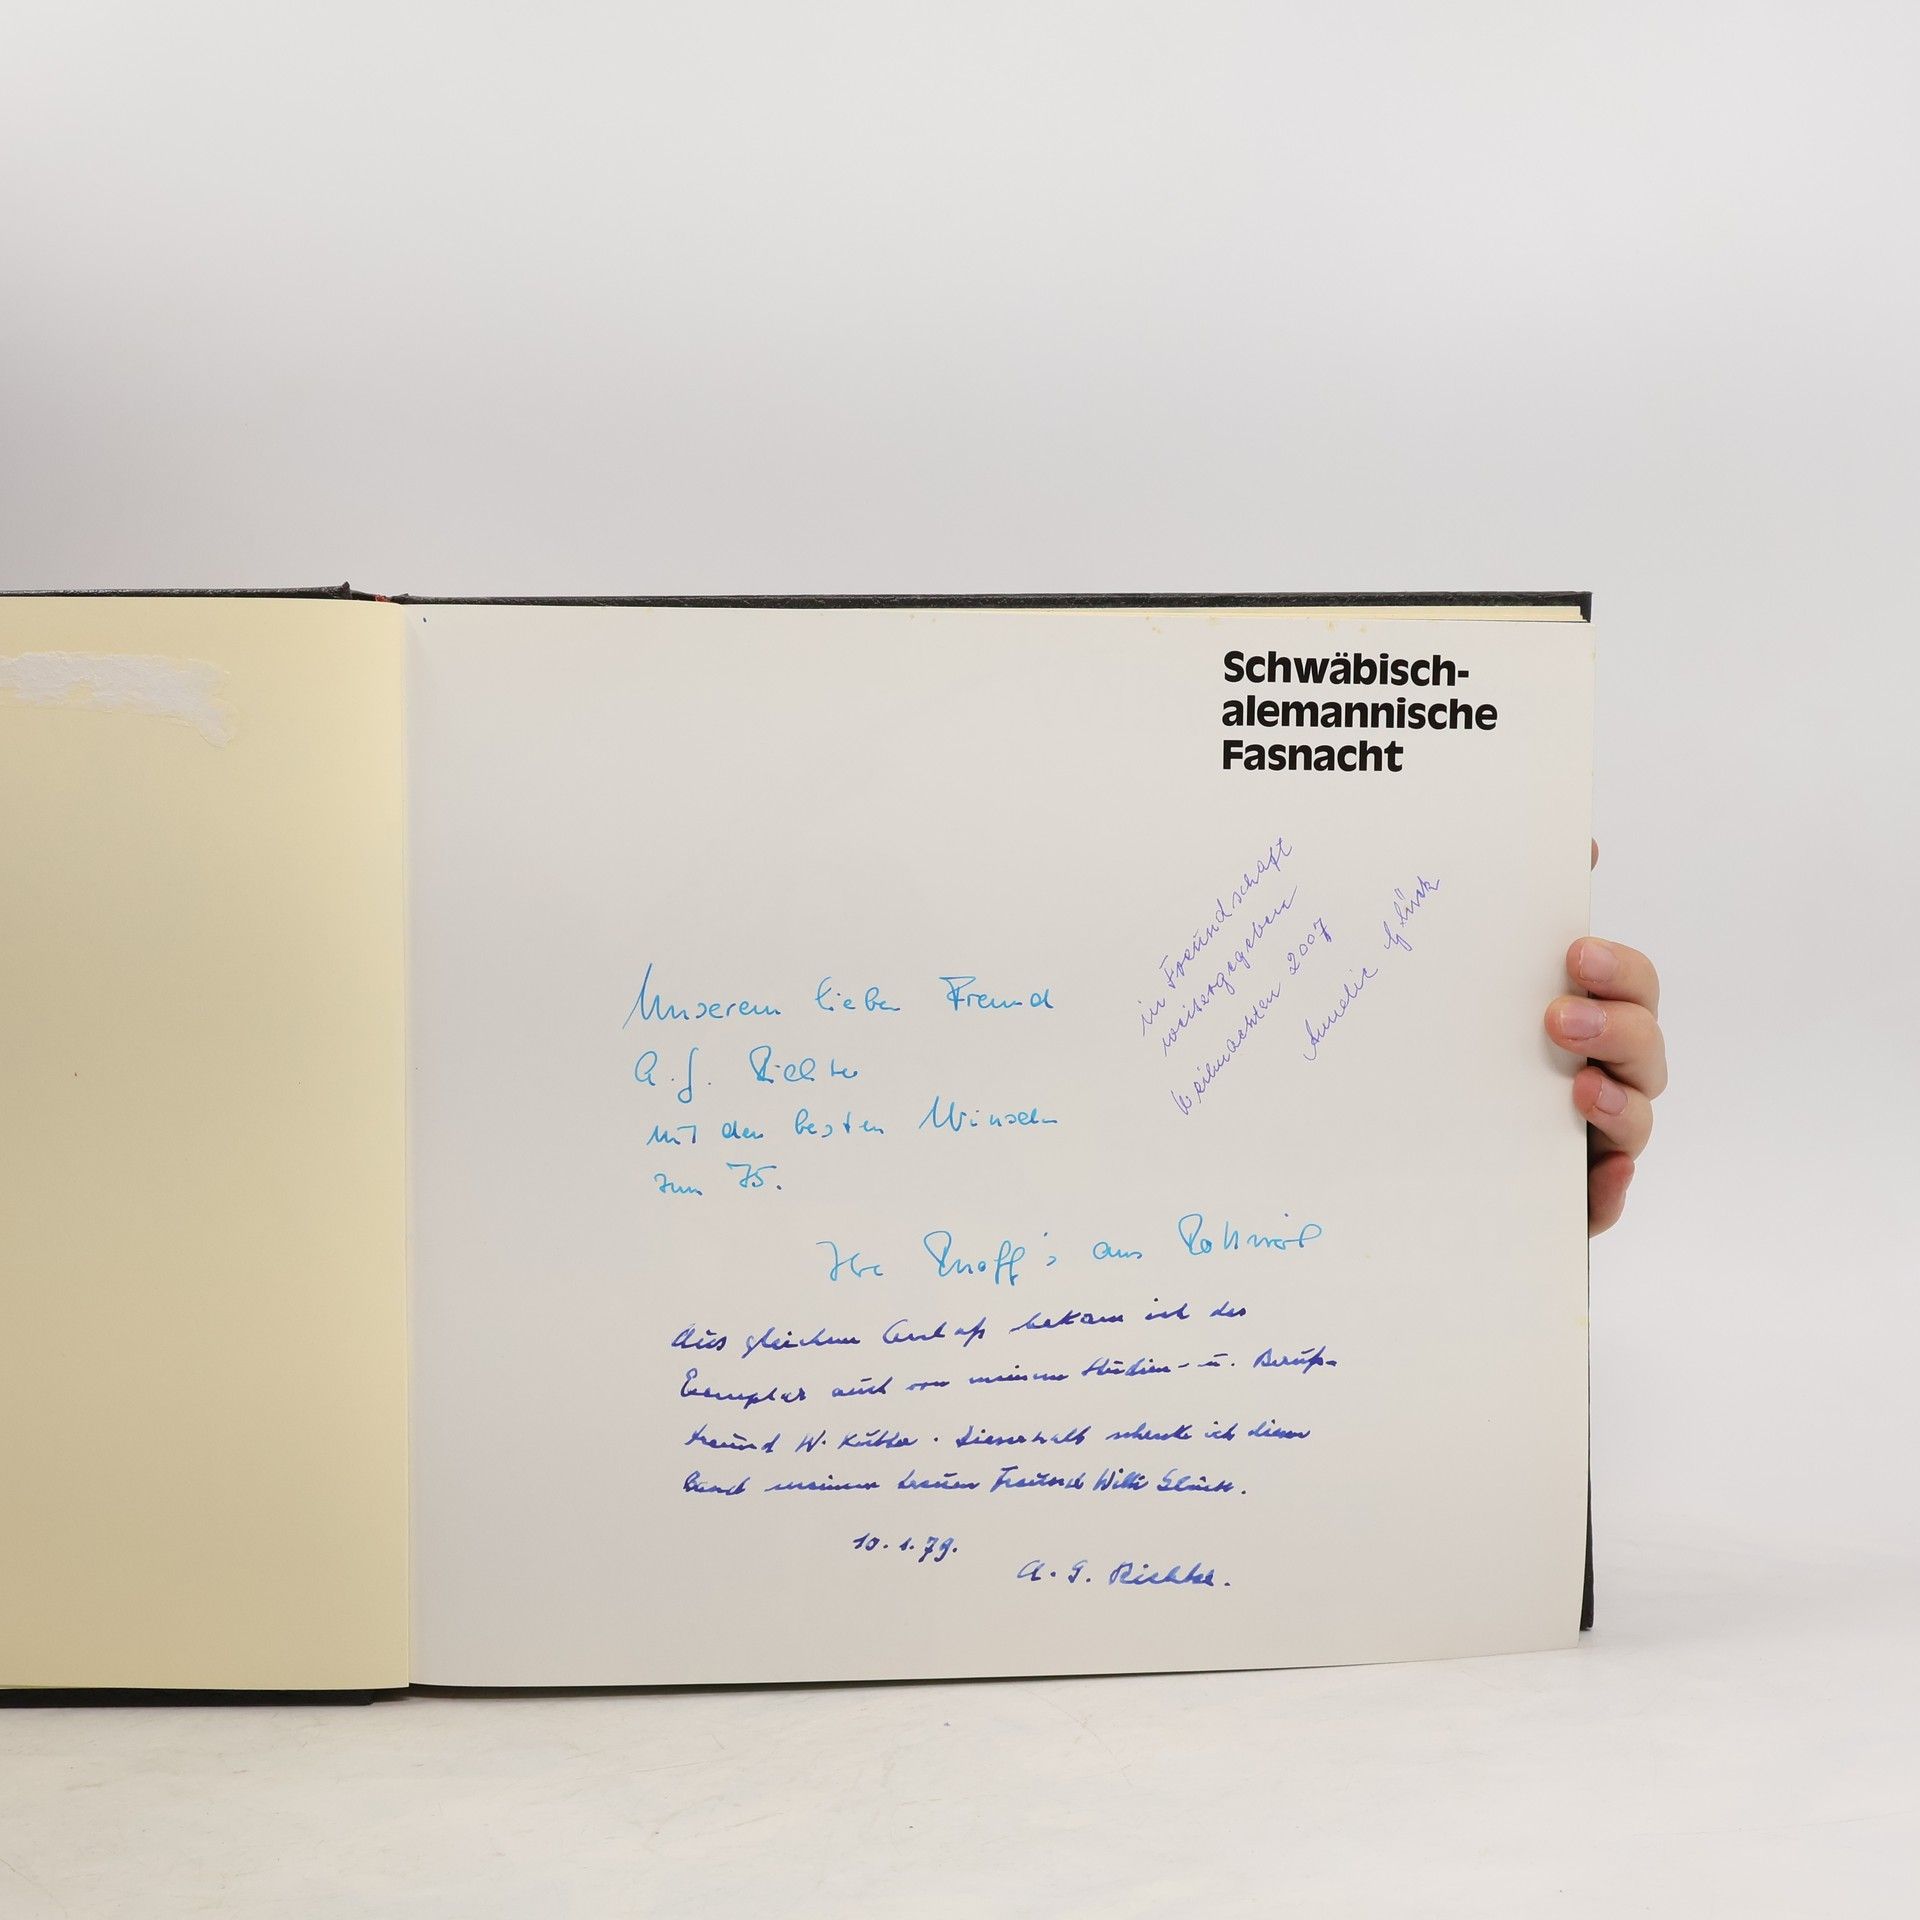 Schwäbisch-
alemannische
Fasnacht
in Freundschaft
weitergegeben
Weihnachten 2007
Annelie Glück
Unserem lieben Freund
A. G. Richter
mit den besten Wünschen
zum 75.
Ihre aus Rottweil
Aus gleichem Anlaß bekam ich das
Exemplar auch von meinem Studien- u. Berufs-
freund W. Kutter. Dieserhalb schenke ich diesen
Band meinem treuen Freund Willi Glück.
10.1.79.
A. G. Richter.